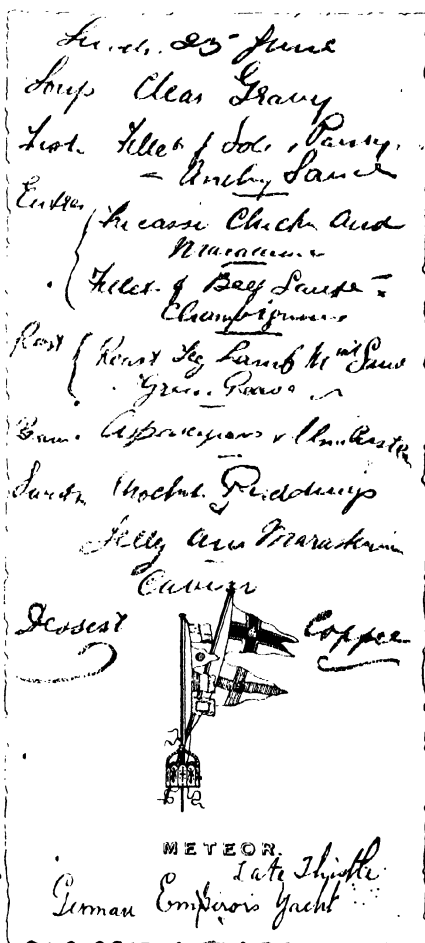 Lunch. 25 June
Soup Clear Gravy
Fish Fillet of Sole Parsley
= Anchovy Sauce
Entree
Fricassi Chicken and
Macaroni
Fillet of Beef Sauce =
Champignons
Roast
Roast Leg Lamb Mint Sauce
Green Peas
Asparagus &
Sweets Puddings
Jelly au Maraskino
Caviar
Dessert
Coffee
METEOR.
Late Thistle
German Emperors Yacht